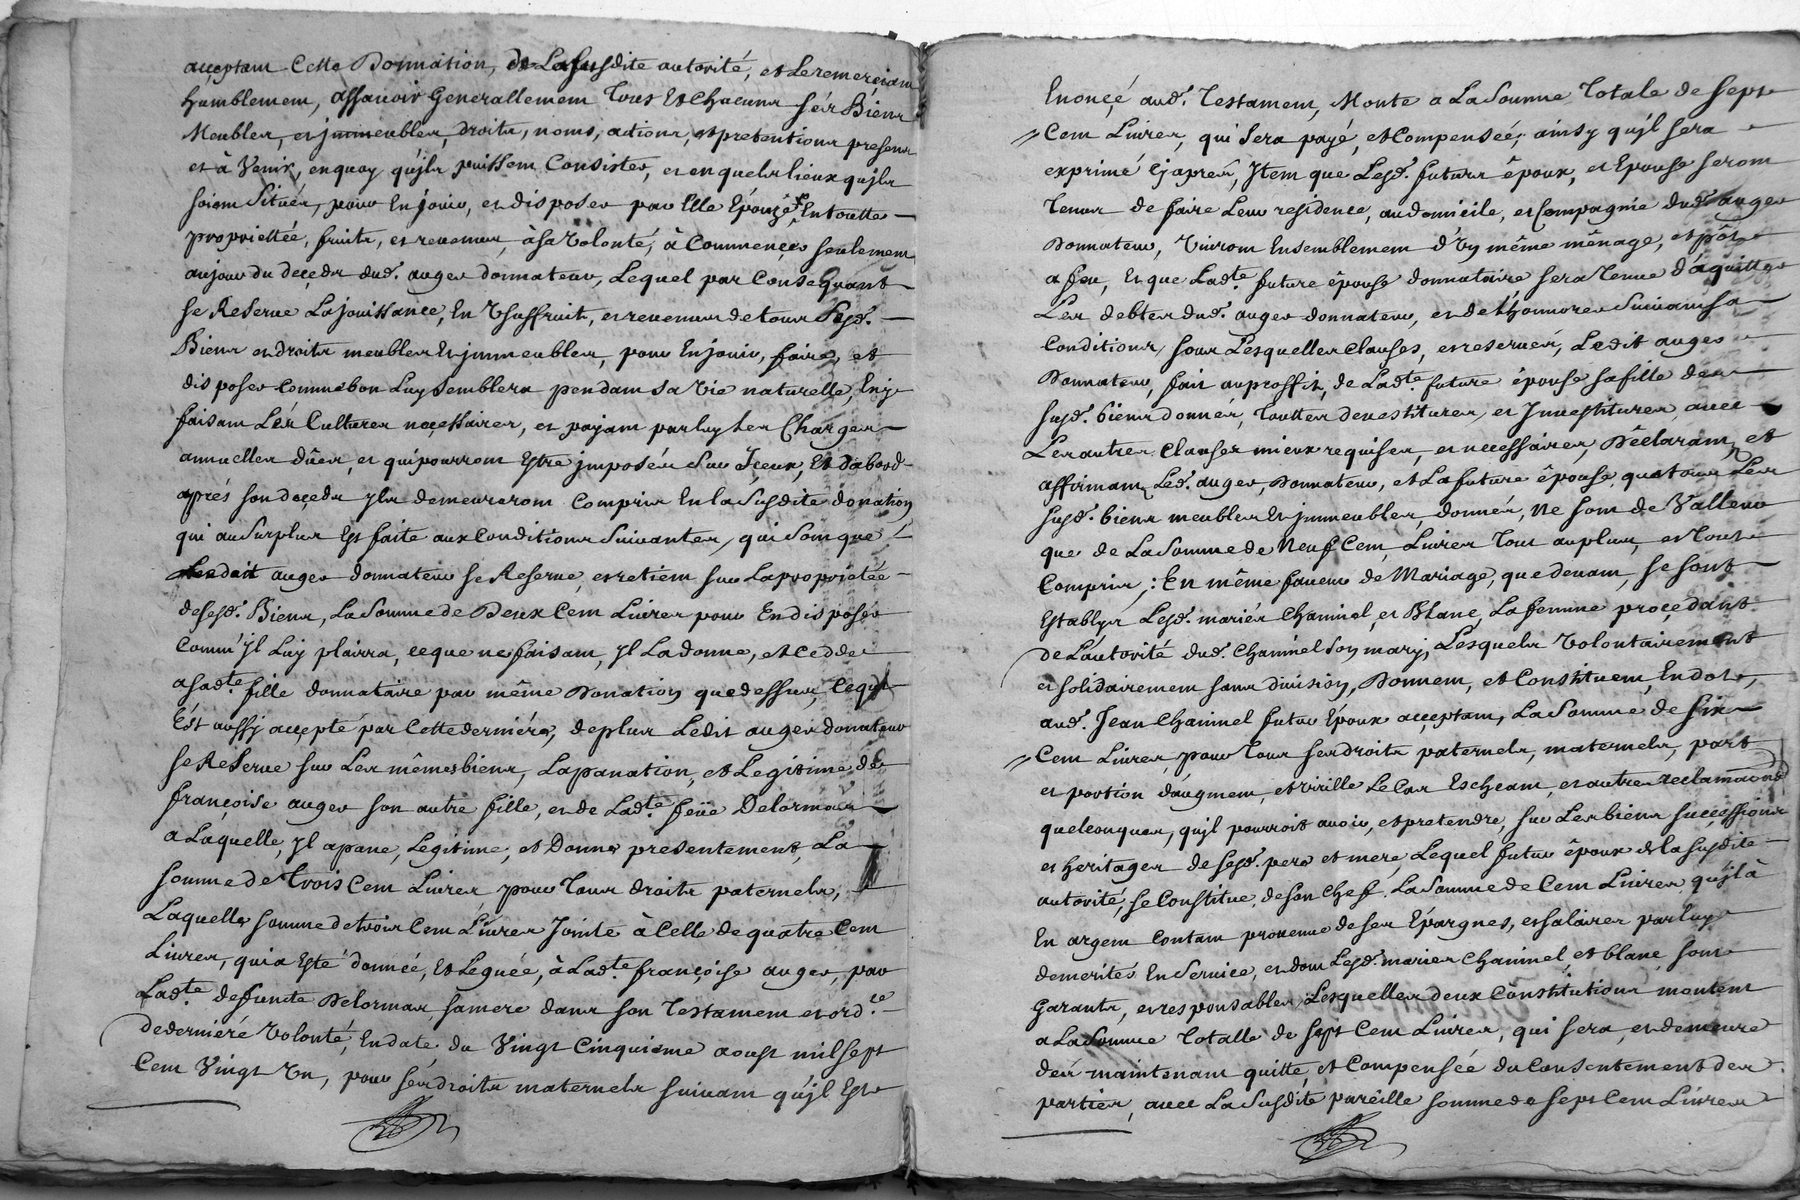 acceptant Cette Donnation, de La susdite autorité, et Le remerciant
humblement, assavoir Generallement Tous Et Chacuns ses Biens
Meubles, et jmmeubles, droits, noms, actions, et pretentions presens
et à Venir, en quoy qu'jls puissent Consister, et en quels lieux qu'jls
soient Situés, pour En jouir, et disposer par Elle Epouze, En toutte
proprietée, fruits, et revenus, à sa Volonté, à Commencer seulement
au jour du deceds dud. auger donnateur, Lequel par Consequant
se Reserve La jouissance, En Vsuffruit, et revenus de tous Sesd.
Biens et droits meubles Et jmmeubles, pour En jouir, faire, et
disposer comme bon Luy semblera pendant sa Vie naturelle, En y
faisant Les Cultures necessaires, et payant par luy Les Charges
annuelles dûes, et qui pourront Estre jmposés Sur Jceux, Et dabord
aprés son deceds jls demeureront Compris En la Susdite donation
qui au Surplus Est faite aux Conditions Suivantes, qui Sont que
Ledit auger donnateur se Reserve, et retient sur La proprietée
de sesd. Biens, La Somme de Deux Cent Livres pour En disposer
Comm'Jl Luy plairra, ce que ne faisant, Jl La donne, et Cedde
a sad.te fille donnataire par même Donation que dessus, Ce qui
Est aussy accepté par Cette derniére, de plus Ledit auger donnateur
se Reserve sur Les mêmes biens, Lapanation, et Legitime de
françoise auger son autre fille, et de Lad.te feüe Delormas
a Laquelle, Jl apane, Legitime, et Donne presentement, La
somme de trois Cent Livres pour Tous droits paternels,
Laquelle somme de trois Cent Livres Jointe à Celle de quatre Cent
Livres, qui a Esté donnée, Et Leguée, à Lad.te françoise auger, par
Lad.te deffunte Delormas, sa mere dans son Testament et ord.ce
de derniére Volonté, En date du Vingt Cinquieme aoust mil sept
Cent Vingt Vn, pour ses droits maternels suivant qu'jl Est
Enoncé aud. Testament, Monte a La Somme Totale de Sept
Cent Livres, qui Sera payé, et Compensée, ainsy qu'jl sera
exprimé Cy aprés, Jtem que Lesd. futurs époux, et Epouse seront
Tenus de faire Leur residence, au domicile, et Compagnie dud. auger
Donnateur, Vivront Ensemblement d'Vn même ménage, et pôt
a feu, Et que Lad.te future épouse donnataire sera Tenue d'aquitter
Les debtes dud. auger donnateur, et de L'honnorer Suivant sa
Conditions, sous Lesquelles Clauses, et reserves, Ledit auger
Donnateur, fait au proffit, de Lad.te future épouse sa fille des
susd. biens donnés, Touttes devestitures, et Jnvestitures, avec
Les autres Clauses mieux requises, et necessaires, Déclarant, et
affirmant Led. auger, Donnateur, et La future épouse, que tous Les
susd. biens meubles Et jmmeubles, donnés, Ne Sont de Valleur
que de La Somme de Neuf Cent Livres Tout au plus, et Tout
Compris; En même faveur de Mariage, que devant, se sont
Establys Lesd. mariés Chaninel, et Blanc, La femme procedant
de L'autorité dud. Chaninel Son mary, Lesquels Volontairement
et solidairement sans division, Donnent, et Constituent, En dot,
aud. Jean Chaninel futur Epoux acceptant, La Somme de Six
Cent Livres, pour Tous ses droits paternels, maternels, part
et portion d'augment, et Virille Le Cas Escheant, et autres reclamaõns
quelconques, qu'jl pourroit avoir, et pretendre, sur Les biens successions
et heritages de Sesd. pere et mere, Lequel futur époux de la susdite
autorité, se Constitue, de son Chef, La Somme de Cent Livres, qu'jl à
En argent Contant provenue de ses Epargnes, et salaires par luy
demerités En Service, et dont Lesd. mariés Chaninel, et blanc sont
Garants, et responsables, Lesquelles deux Constitutions montent
a La Somme Totalle de sept Cent Livres, qui sera, et demeure
dés maintenant quitte, et Compensée du Consentement des
parties, avec La Susdite pareille somme de sept Cent Livres